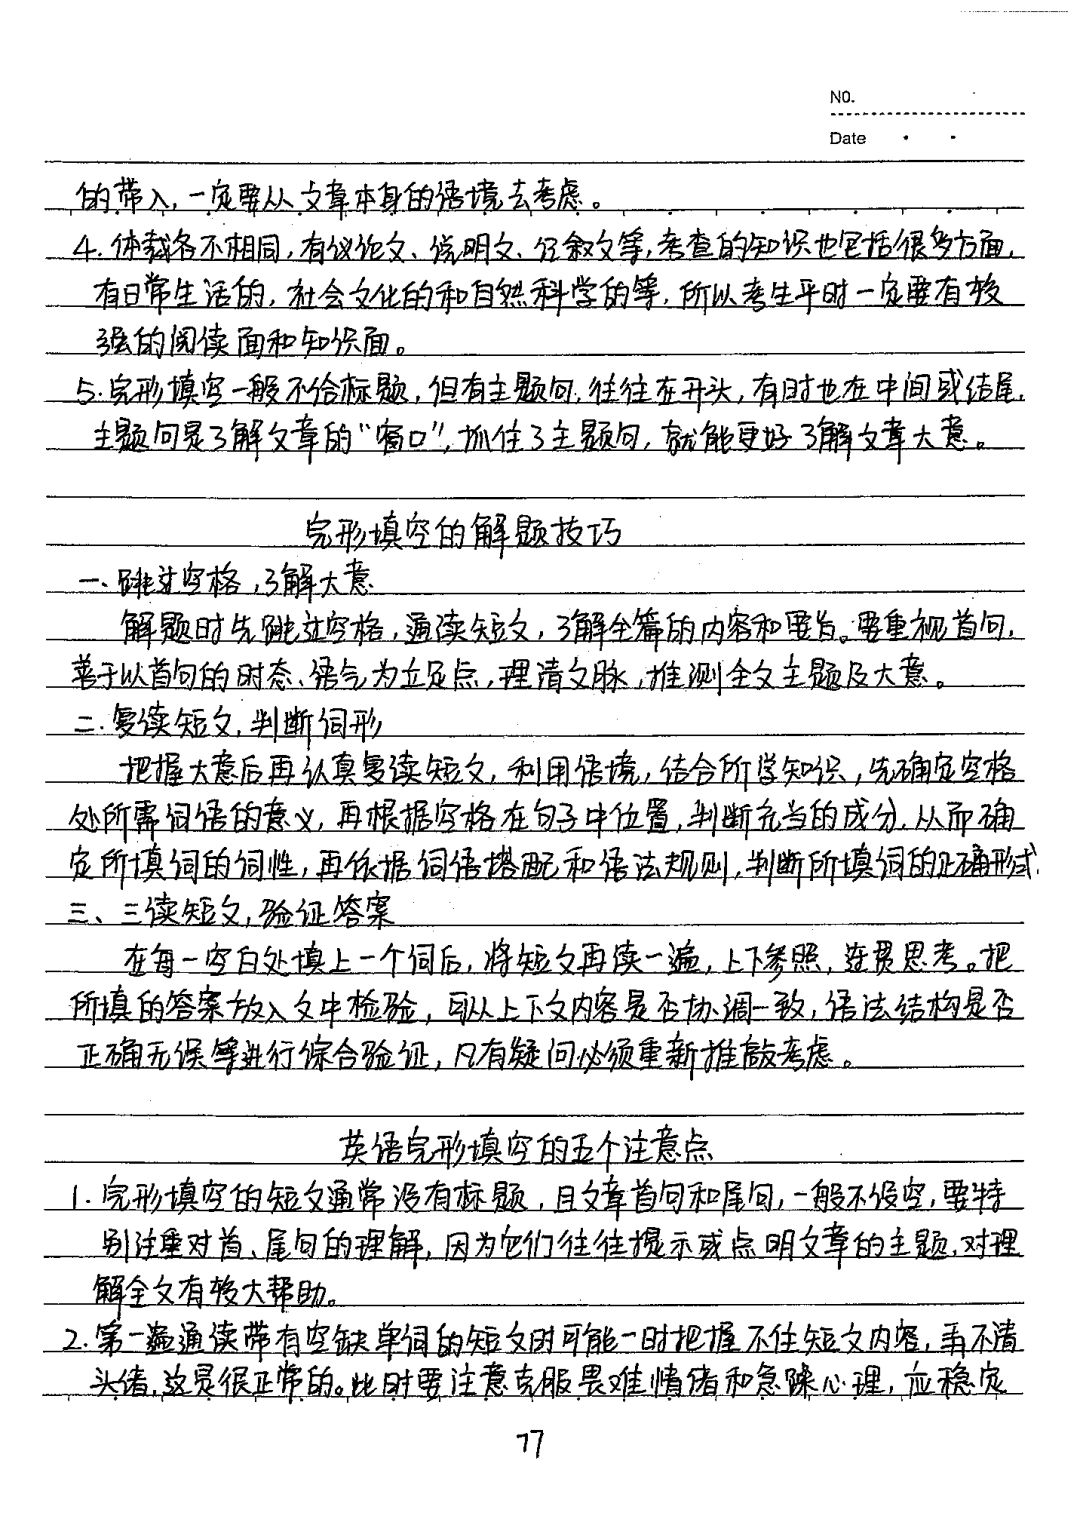 NO.
Date
的带入，一定要从文章本身的语境去考虑。
4. 体裁各不相同，有议论文、说明文、记叙文等，考查的知识也包括很多方面，
有日常生活的，社会文化的和自然科学的等，所以考生平时一定要有较
强的阅读面和知识面。
5. 完形填空一般不给标题，但有主题句，往往在开头，有时也在中间或结尾，
主题句是了解文章的“窗口”，抓住了主题句，就能更好了解文章大意。
完形填空的解题技巧
一、跳过空格，了解大意
解题时先跳过空格，通读短文，了解全篇的内容和要旨。要重视首句，
善于以首句的时态、语气为立足点，理清文脉，推测全文主题及大意。
二、复读短文，判断词形
把握大意后再认真复读短文，利用语境，结合所学知识，先确定空格
处所需词语的意义，再根据空格在句子中位置，判断充当的成分，从而确
定所填词的词性，再依据词语搭配和语法规则，判断所填词的正确形式，
三、三读短文，验证答案
在每一空白处填上一个词后，将短文再读一遍，上下参照，连贯思考。把
所填的答案放入文中检验，可从上下文内容是否协调一致，语法结构是否
正确无误等进行综合验证，凡有疑问必须重新推敲考虑。
英语完形填空的五个注意点
1. 完形填空的短文通常没有标题，且文章首句和尾句，一般不设空，要特
别注重对首、尾句的理解，因为它们往往提示或点明文章的主题，对理
解全文有较大帮助。
2. 第一遍通读带有空缺单词的短文时可能一时把握不住短文内容，弄不清
头绪，这是很正常的。此时要注意克服畏难情绪和急躁心理，应稳定
77